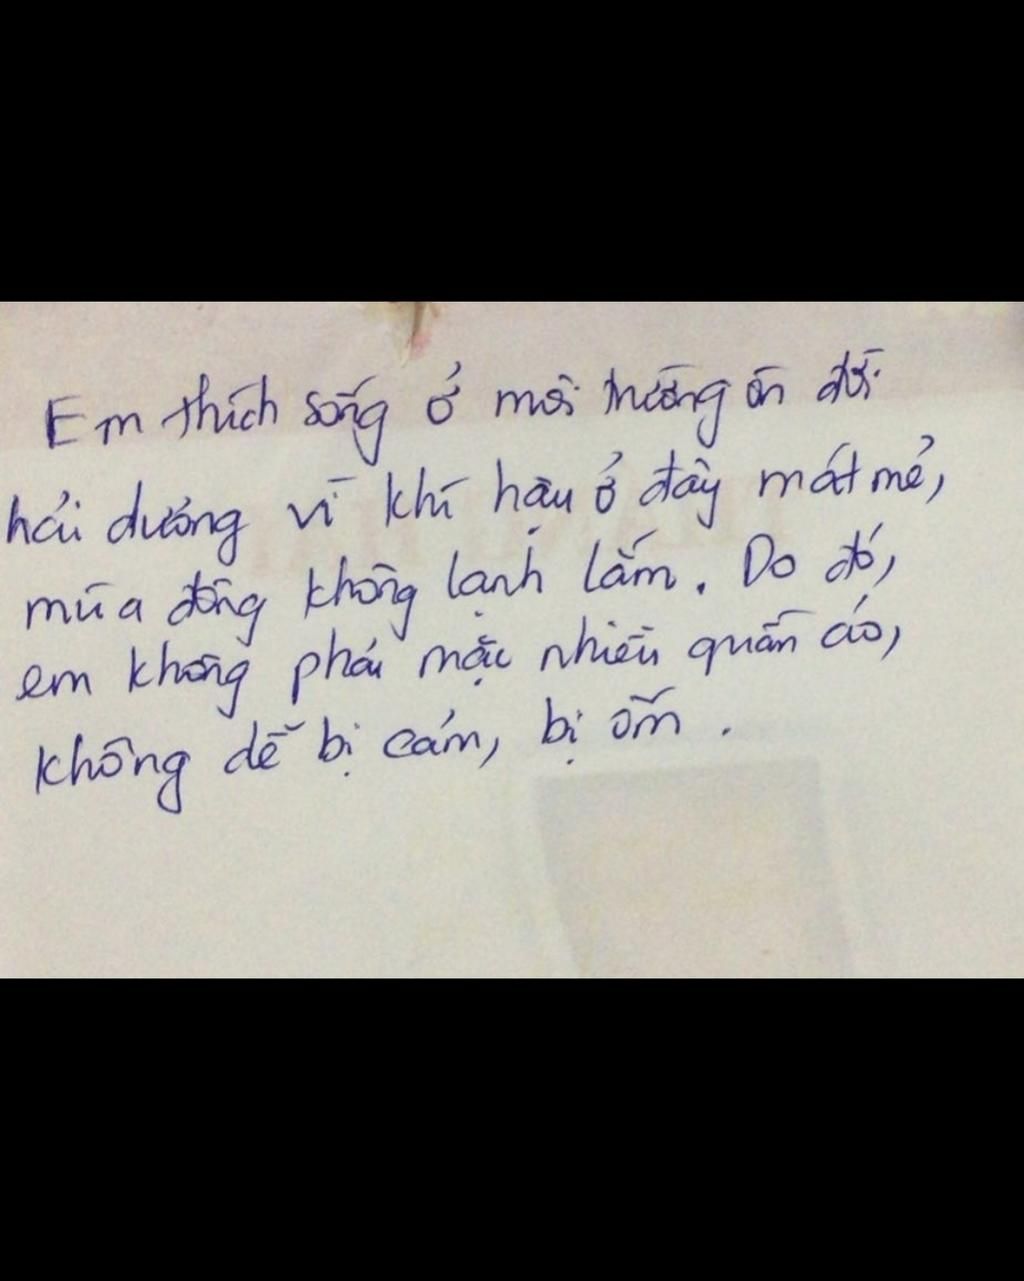 Em thích sống ở môi trường ôn đới
hải dương vì khí hậu ở đây mát mẻ,
mùa đông không lạnh lắm. Do đó,
em không phải mặc nhiều quần áo,
không dễ bị cảm, bị ốm.